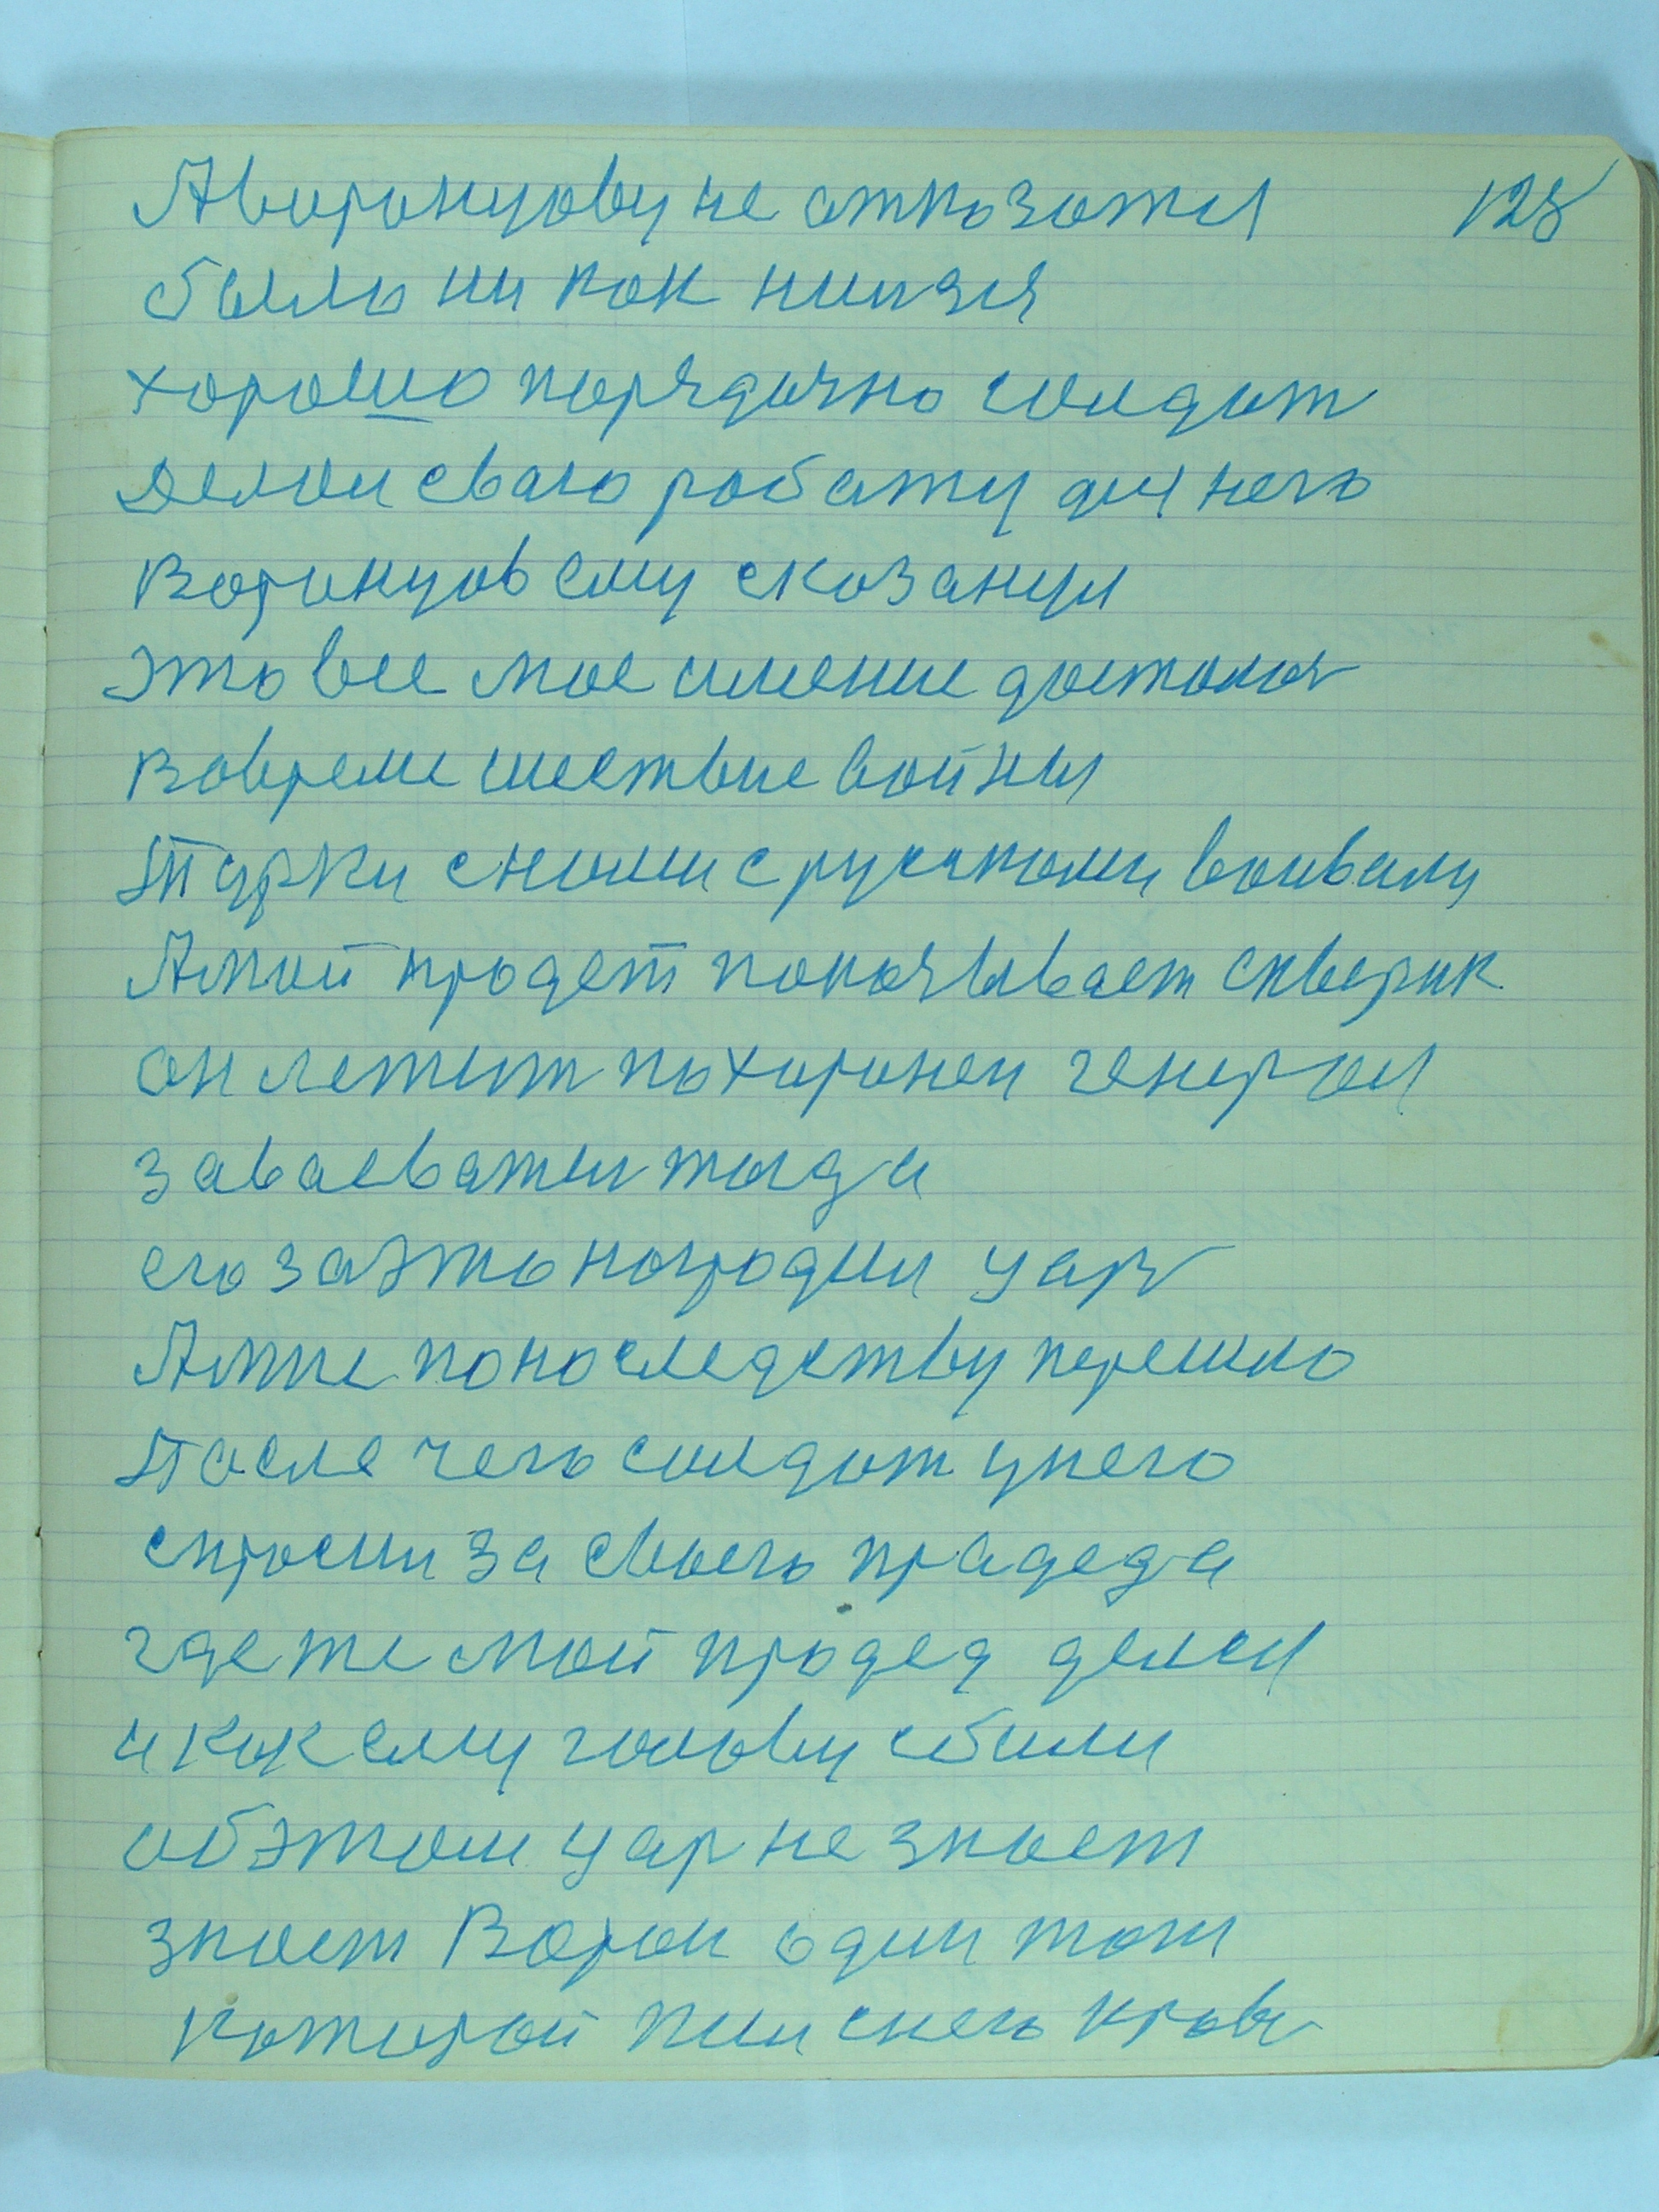 Аворонцову не отказатся 128
было ни как нильзя
хорошо порядачно солдат
делал сваю работу для него
Воронцов ему сказанул
это вся мое имение досталось
вовреми шествие войны
Турки снами с русаками воивали
Амой прадет показывает скверик
он летит похоронен генирал
заваеватил тагда
его заэто наградил царь
Амне понаследству перешло
После чего солдат унего
спросил за своего прадеда
где же мой прадед делся
и как ему голову сбили
обэтом царь не знает
знает Ворон один том
каторай пил снего кровь